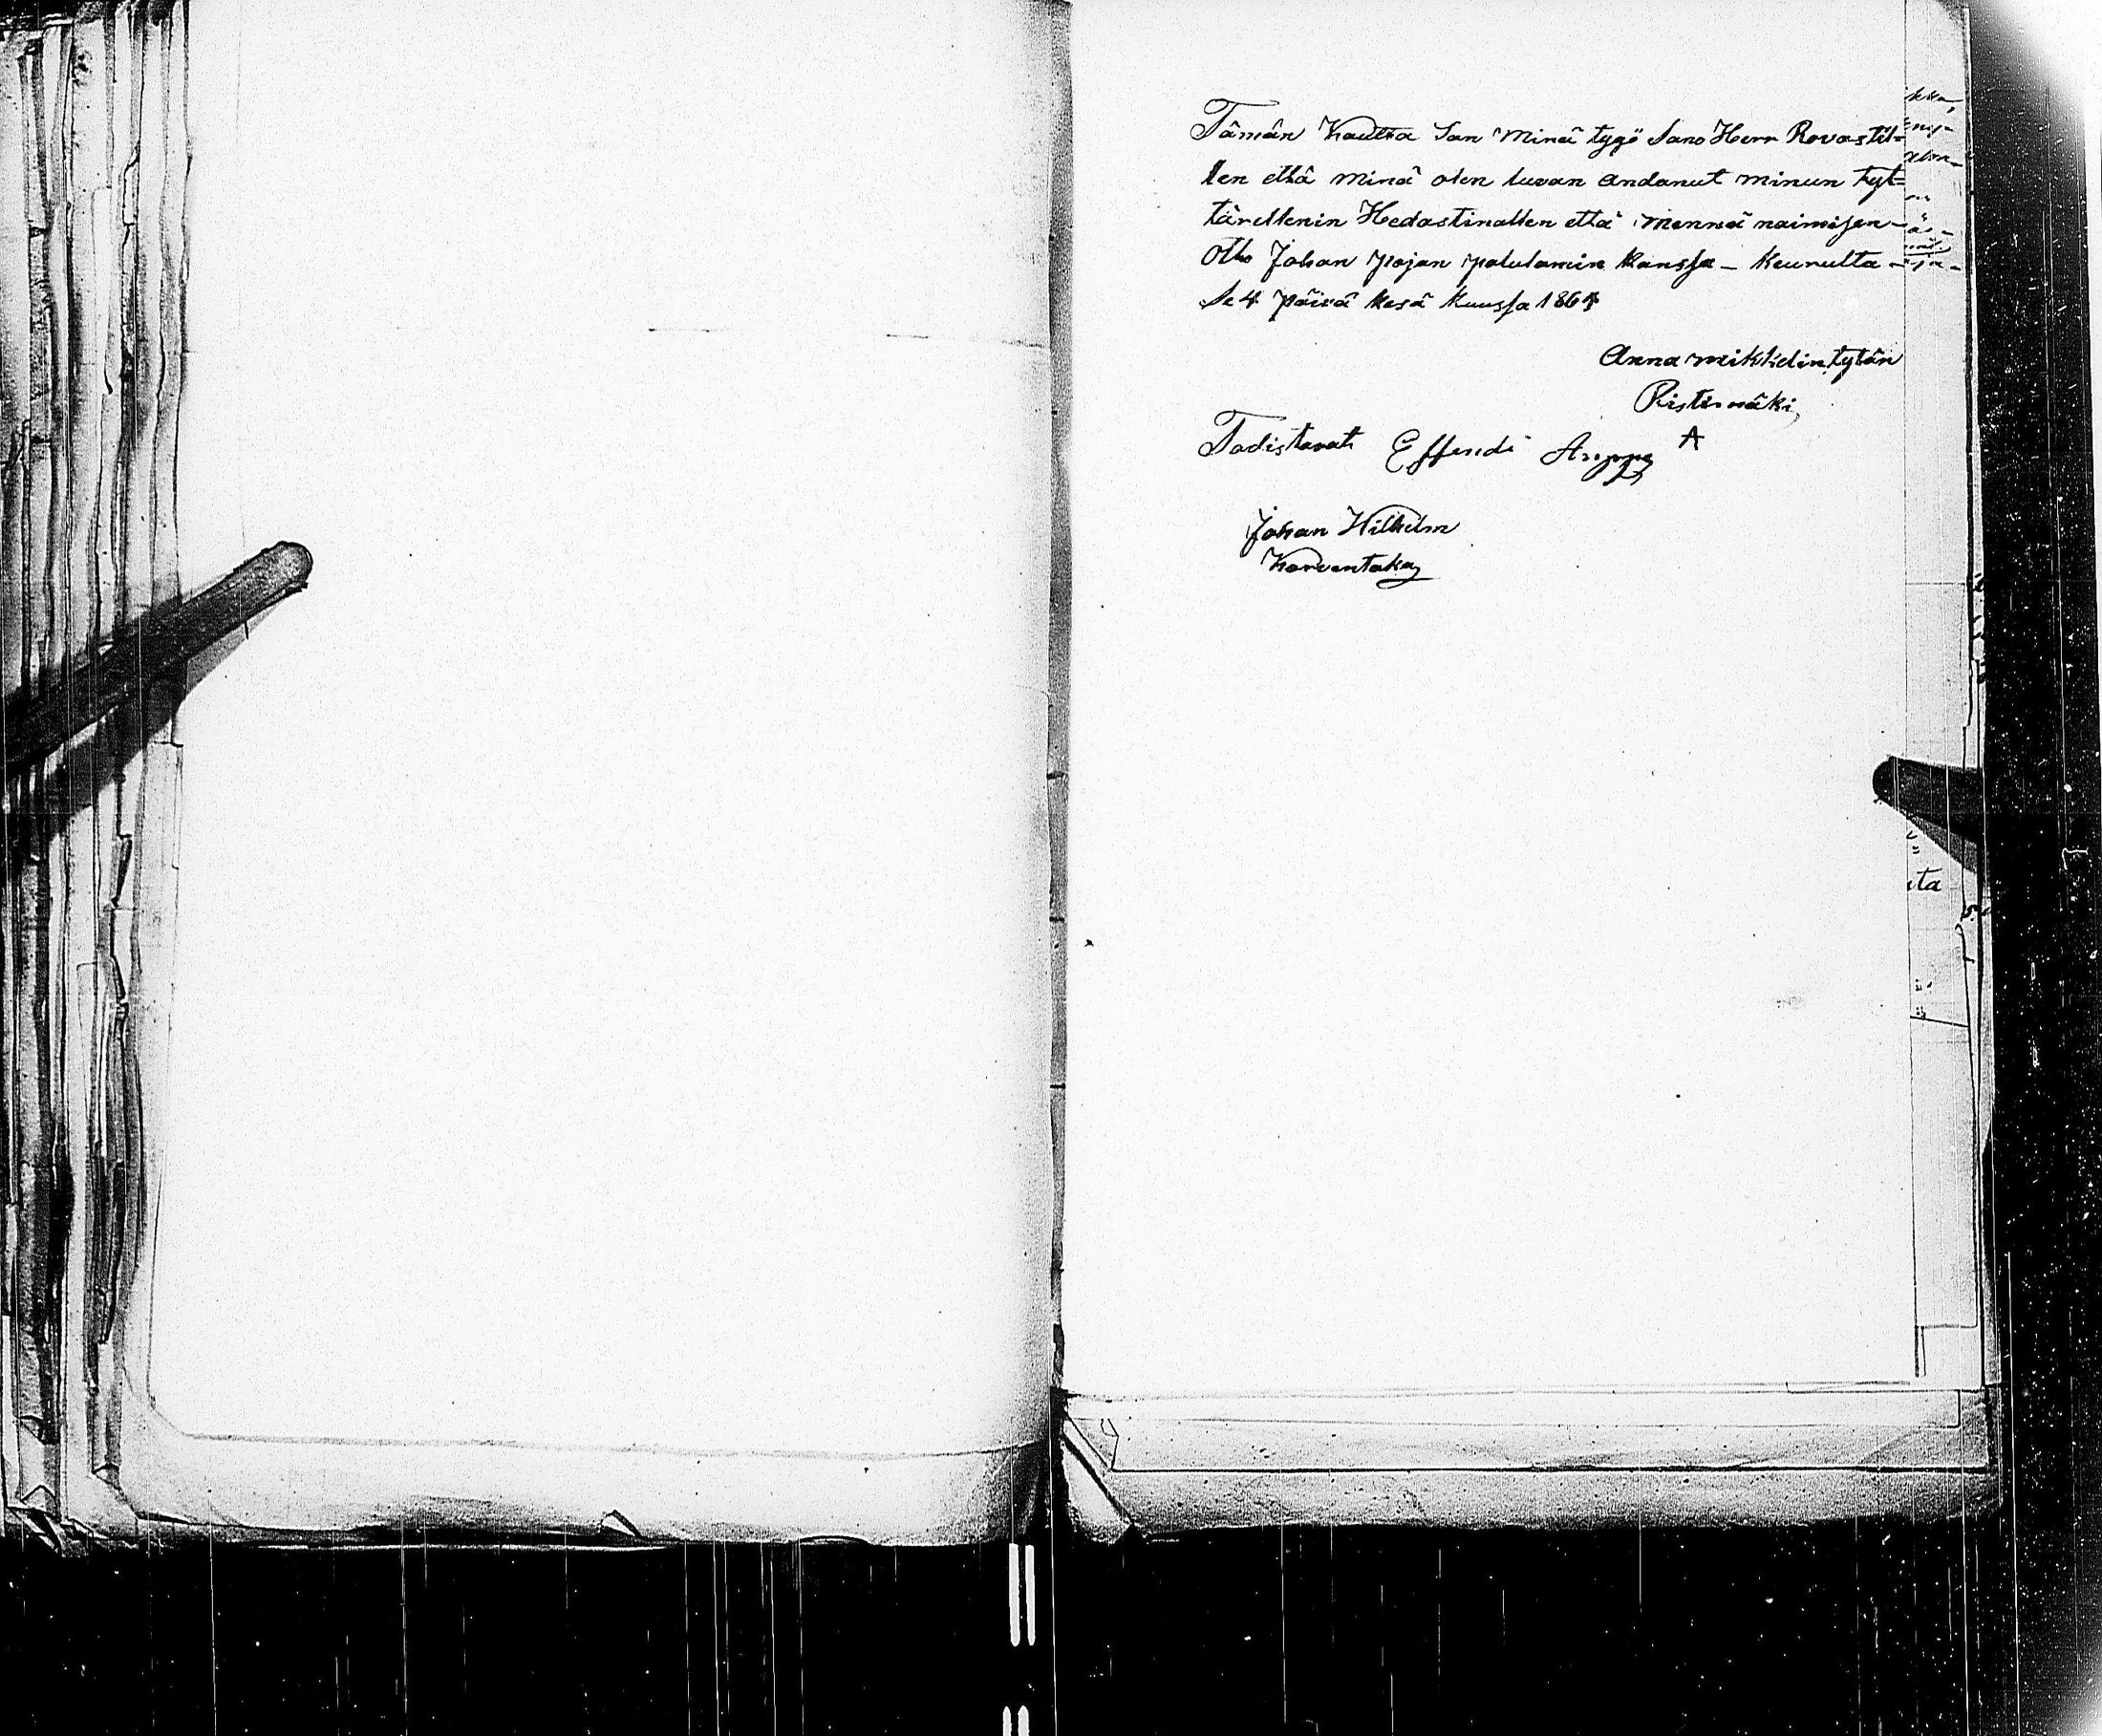 Tämän kautta San minä tygö Sano Herr Rovastil=
len että minä olen luvan andanut minun tyt=
tärellenin Hedastinallen että mennä naimisen
Otto Johan pojan palulamin kanssa - keurulta -
Se 4 päivä kesä kuussa 1864
Anna mikkelin tytän
Ristimäki
A
Todistavat Effendi Anppe
Johan Wilhelm
Korventaka
ita